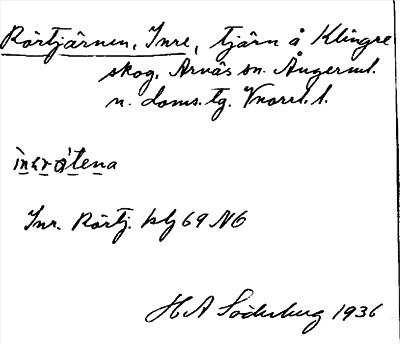 Rörtjärnen, Inre, tjärn å Klingre
skog, Arnäs sn. Ångerml.
n. doms.tg. Vnorrl. l.
Inr. Rörtj. blj 69 NO
H A Söderberg 1936